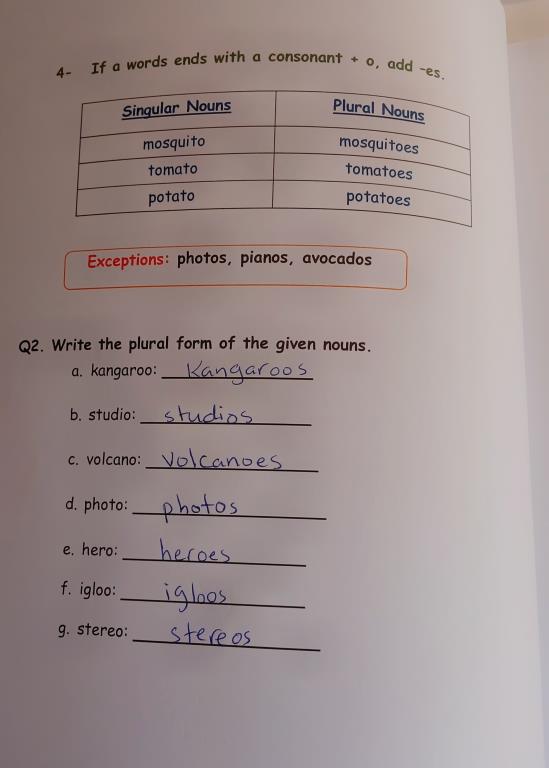 4- If a words ends with a consonant + o, add -es.
Singular Nouns Plural Nouns
mosquito mosquitoes
tomato tomatoes
potato potatoes
Exceptions: photos, pianos, avocados
Q2. Write the plural form of the given nouns.
a. kangaroo: Kangaroos
b. studio: studios
c. volcano: volcanoes
d. photo: photos
e. hero: heroes
f. igloo: igloos
g. stereo: stereos